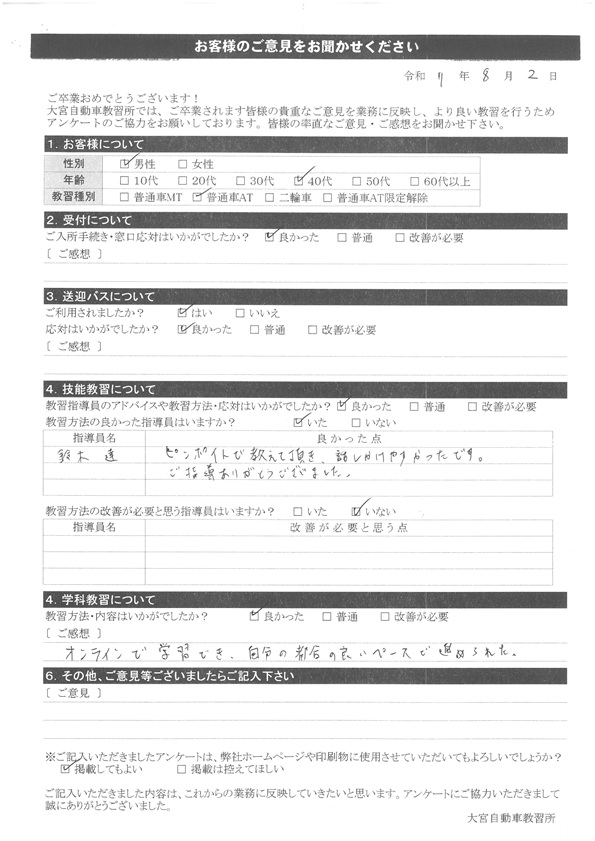 お客様のご意見をお聞かせください
令和 7 年 8 月 2 日
ご卒業おめでとうございます!
大宮自動車教習所では、ご卒業されます皆様の貴重なご意見を業務に反映し、より良い教習を行うため
アンケートのご協力をお願いしております。皆様の率直なご意見・ご感想をお聞かせ下さい。
1. お客様について
性別 ☑男性 □女性
年齢 □10代 □20代 □30代 ☑40代 □50代 □60代以上
教習種別 □普通車MT ☑普通車AT □二輪車 □普通車AT限定解除
2. 受付について
ご入所手続き・窓口応対はいかがでしたか? ☑良かった □普通 □改善が必要
[ ご感想 ]
3. 送迎バスについて
ご利用されましたか? ☑はい □いいえ
応対はいかがでしたか? ☑良かった □普通 □改善が必要
[ ご感想 ]
4. 技能教習について
教習指導員のアドバイスや教習方法・応対はいかがでしたか? ☑良かった □普通 □改善が必要
教習方法の良かった指導員はいますか? ☑いた □いない
指導員名 良かった点
鈴木 達 ピンポイトで教えて頂き、話しかけやすかったです。
ご指導ありがとうございました。
教習方法の改善が必要と思う指導員はいますか? □いた ☑いない
指導員名 改善が必要と思う点
4. 学科教習について
教習方法・内容はいかがでしたか? ☑良かった □普通 □改善が必要
[ ご感想 ]
オンラインで学習でき、自分の都合の良いペースで進められた。
6. その他、ご意見等ございましたらご記入下さい
[ ご意見 ]
※ご記入いただきましたアンケートは、弊社ホームページや印刷物に使用させていただいてもよろしいでしょうか?
☑掲載してもよい □掲載は控えてほしい
ご記入いただきました内容は、これからの業務に反映していきたいと思います。アンケートにご協力いただきまして
誠にありがとうございました。
大宮自動車教習所